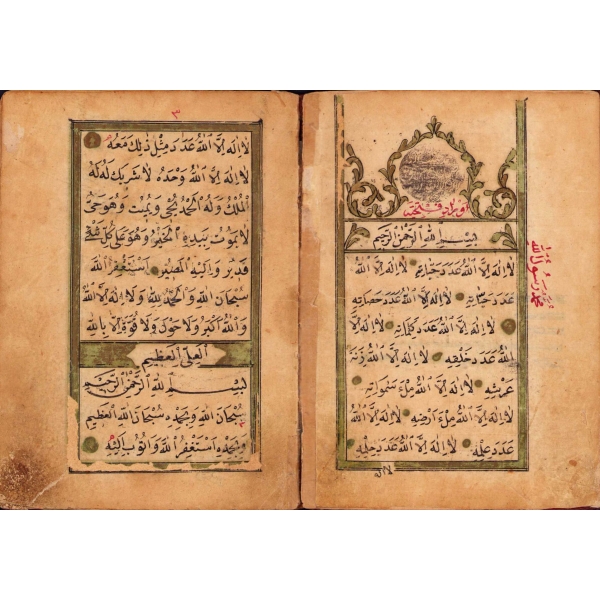 بسم الله الرحمن الرحيم
لا اله الا الله عدد حياته لا اله الا الله
لا اله الا الله عدد كلماته لا اله الا
الله عدد خلقه لا اله الا الله زنة
عرشه لا اله الا الله ملء سمواته
لا اله الا الله ملء ارضه لا اله الا الله
عدد علمه لا اله الا الله عدد
لا اله
٣
لا اله الا الله عدد مثل ذلك معه
لا اله الا الله وحده لا شريك له له
الملك وله الحمد يحيى ويميت وهو حى
لا يموت بيده الخير وهو على كل شئ
قدير واليه المصير استغفر الله
سبحان الله والحمد لله ولا اله الا الله
والله اكبر ولا حول ولا قوة الا بالله
العلى العظيم
بسم الله الرحمن الرحيم
سبحان الله وبحمده سبحان الله العظيم
وبحمده استغفر الله واتوب اليه